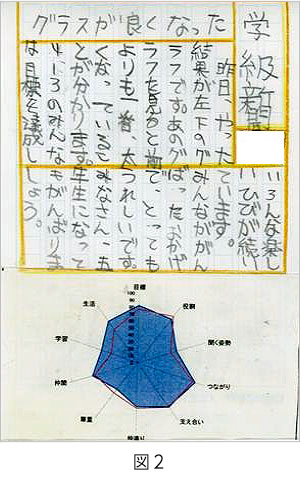 学級新
クラスが良くなった
昨日、やった
結果が左下のグ
ラフです。あのグ
ラフを見ると前
よりも一番、太
くなっているこ
とが分かります。
4-3のみんな
は目標を達成し
いろんな楽し
いひびが続い
ています。
みんながん
ばったおかげ
で、とっても
うれしいです。
みなさん、五
年生になって
もがんばりま
しょう。
目標
役割
聞く姿勢
つながり
支え合い
尊重
仲間
学習
生活
100
90
図2